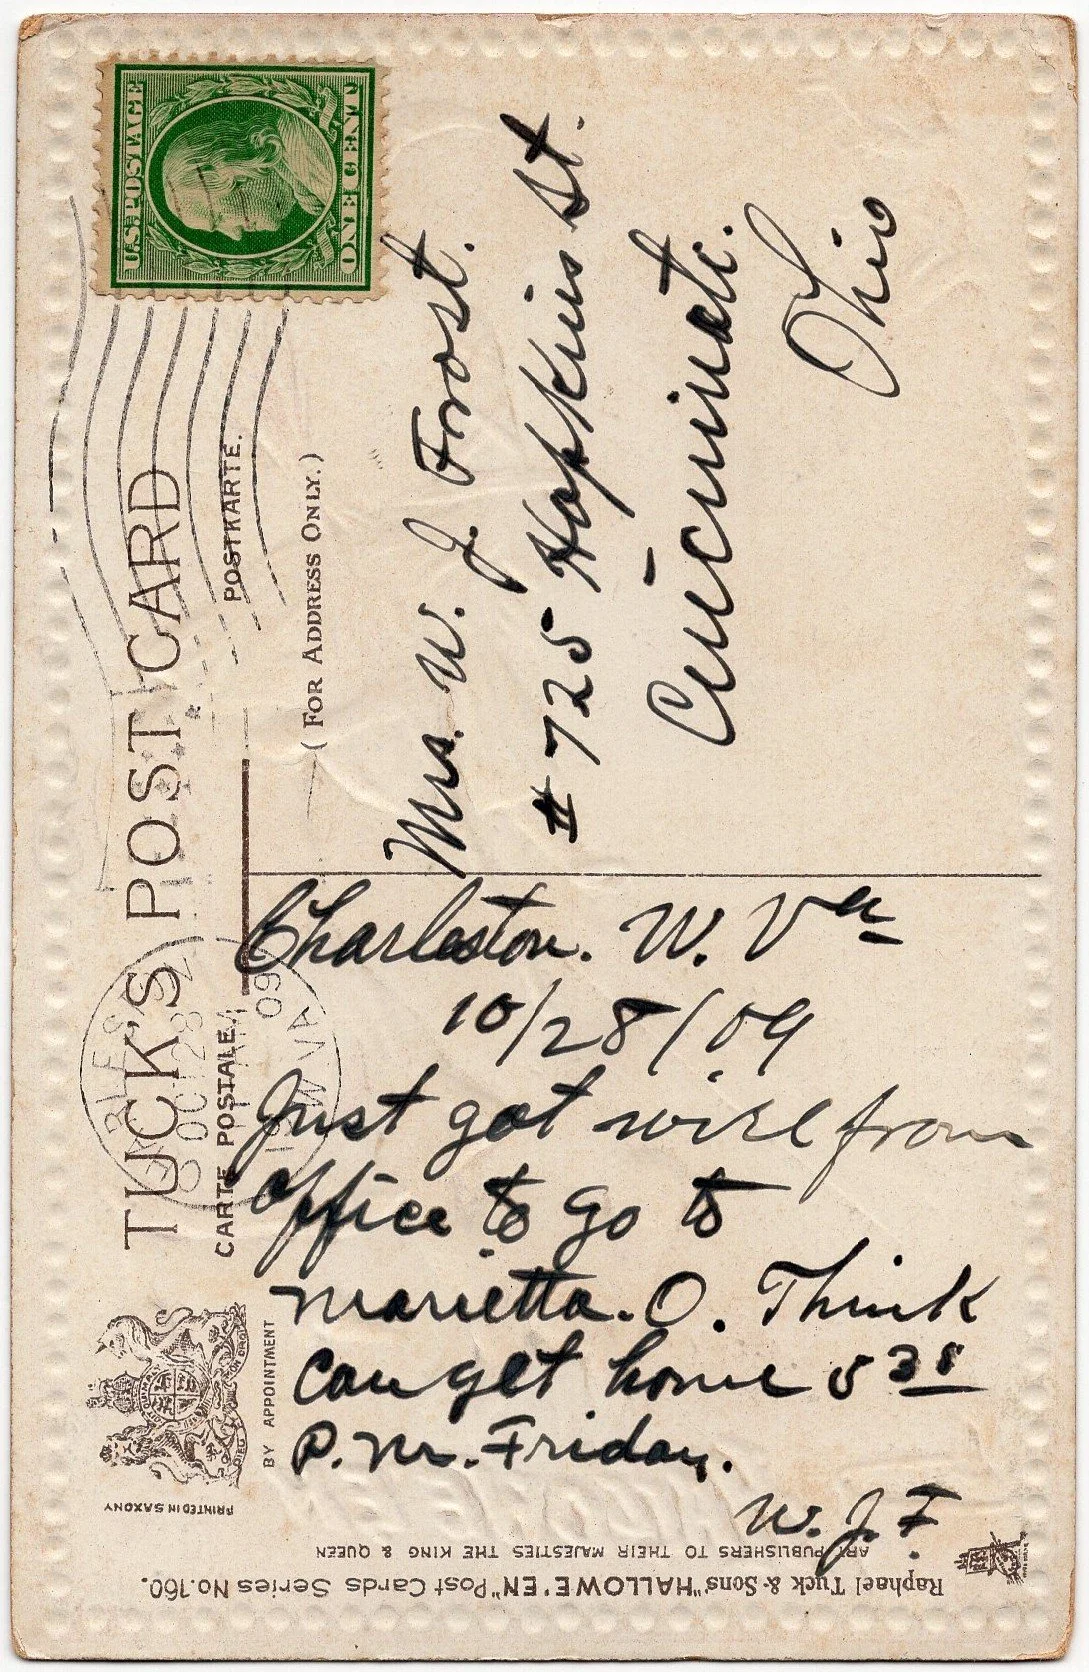 U.S. POSTAGE
ONE CENT
TUCK'S POST CARD
CARTE POSTALE.
POSTKARTE.
(FOR ADDRESS ONLY.)
OCT 28
09
W.VA
BY APPOINTMENT
PRINTED IN SAXONY
Mrs. W. J. Frost.
#725 Hopkins St.
Cincinnati.
Ohio
Charleston. W. Va
10/28/09
Just got wire from
office to go to
Marietta. O. Think
can get home 5 38
P.M. Friday.
W. J. F.
Raphael Tuck & Sons' "HALLOWE'EN" Post Cards Series No. 160.
ART PUBLISHERS TO THEIR MAJESTIES THE KING & QUEEN